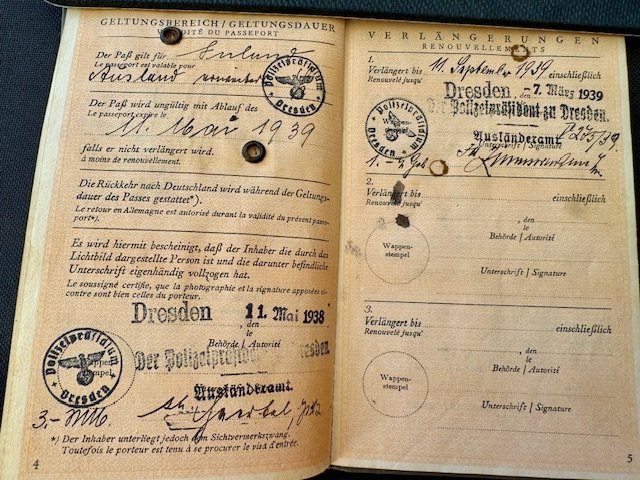 GELTUNGSBEREICH / GELTUNGSDAUER
VALIDITÉ DU PASSEPORT
Der Paß gilt für Inland
Le passeport est valable pour
Ausland
Polizeipräsidium
Dresden
Der Paß wird ungültig mit Ablauf des
Le passeport expire le
11. Mai 1939
falls er nicht verlängert wird.
à moins de renouvellement.
Die Rückkehr nach Deutschland wird während der Geltungs-
dauer des Passes gestattet*).
Le retour en Allemagne est autorisé durant la validité du présent passe-
port*).
Es wird hiermit bescheinigt, daß der Inhaber die durch das
Lichtbild dargestellte Person ist und die darunter befindliche
Unterschrift eigenhändig vollzogen hat.
Le soussigné certifie, que la photographie et la signature apposées ci-
contre sont bien celles du porteur.
Dresden, den 11. Mai 1938
le
Behörde / Autorité
Der Polizeipräsident Dresden.
Polizeipräsidium
Wappen-
stempel
Dresden
Ausländeramt.
3.-
*) Der Inhaber unterliegt jedoch dem Sichtvermerkszwang.
Toutefois le porteur est tenu à se procurer le visa d'entrée.
4
VERLÄNGERUNGEN
RENOUVELLEMENTS
1.
Verlängert bis 11. September 1939 einschließlich
Renouvelé jusqu'
Dresden, den -7. März 1939
Der Polizeipräsident zu Dresden.
Polizeipräsidium
Dresden
Ausländeramt.
Unterschrift / Signature
2.
Verlängert bis einschließlich
Renouvelé jusqu'
, den
le
Behörde / Autorité
Wappen-
stempel
Unterschrift / Signature
3.
Verlängert bis einschließlich
Renouvelé jusqu'
, den
le
Behörde / Autorité
Wappen-
stempel
Unterschrift / Signature
5